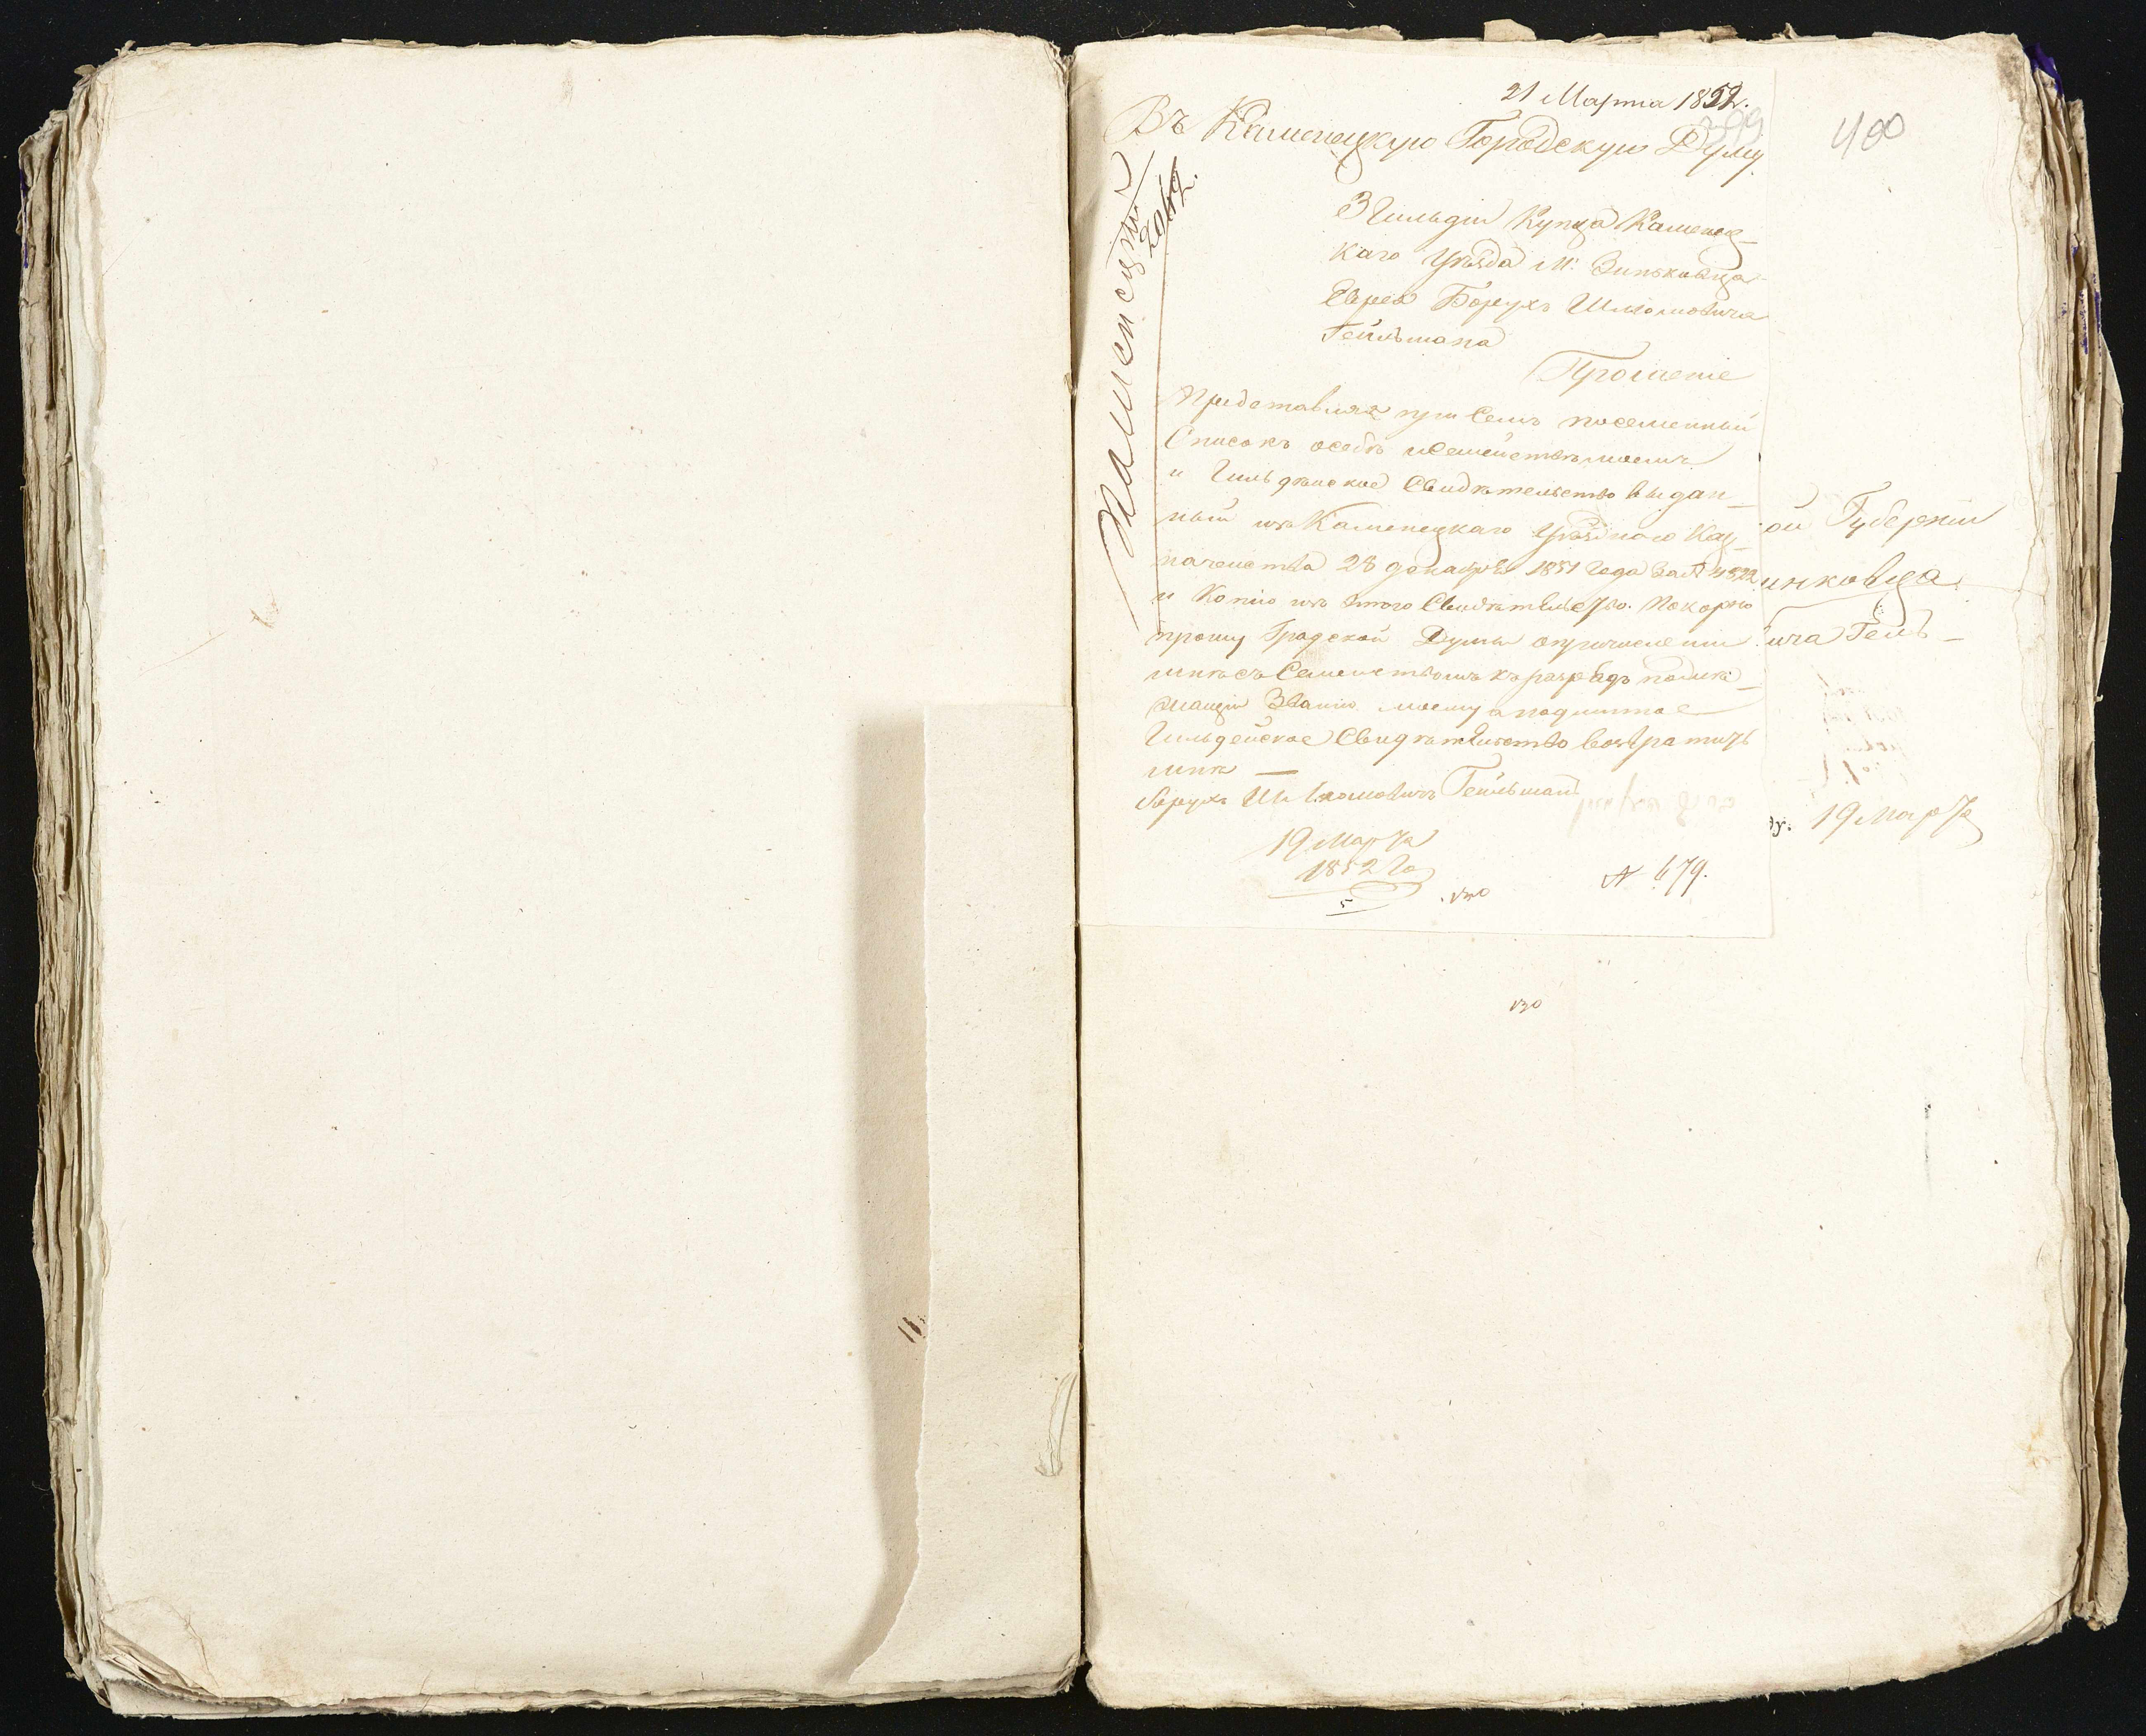 21 Марта 1852.
399
400
Въ Каменецкую Городскую Думу
3 Гильдіи Купца Каменец-
каго Уѣзда М: Зиньковца
Еврея Борухъ Шліомовича
Гейльмана
Прошеніе
Представляя при Семъ посемейный
Списокъ осебѣ иСемействѣ моемъ
и Гильдѣйское Свидѣтельство выдан-
ный изъ Каменецкаго Уѣзднаго Каз-
начейства 28 декабря 1851 года за № 4322
и Копію изъ этого Свидѣтельство. Покорно
прошу Градской Думы опричисленіи
мнѣ съ Семействомъ къ разрядъ подле-
жащій Званію моему а подлинное
Гильдейское Свидѣтельство возвратить
мнѣ —
Борухъ Шліомовичъ Гейльманъ
19 Марта
1852 Го
5
130
№ 679.
ой Губерніи
инковца
ича Гель-
19 Марта
130